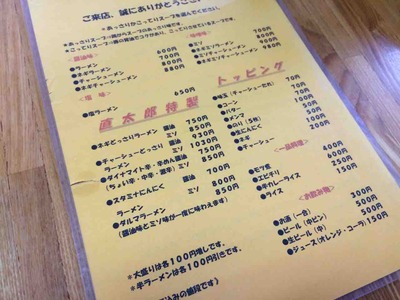 ご来店、誠にありがとうござ
*あっさりかこってりスープを選んでください。
*あっさりスープ=鶏がらスープのあっさり味です。
*こってりスープ=豚の背脂でコクがあり、こってりさせているスープです。
<醤油味>
●ラーメン 600円
●ネギラーメン 700円
●チャーシューメン 800円
●ネギチャーシューメン 850円
<味噌味>
●ミソ 700円
●ネギミソラーメン
●ミソチャーシューメン
●ネギミソチャーシューメン
<塩味>
●塩ラーメン 600円
直太郎特製
●ネギどっさりラーメン 醤油 750円
ミソ 850円
●チャーシューどっさり 醤油 950円
ラーメン ミソ 1030円
●ダイナマイト辛・辛めん 醤油 750円
(ちょい辛・中辛・激辛) ミソ 850円
●スタミナにんにく 醤油 700円
ラーメン ミソ 800円
●ダルマラーメン 850円
(醤油味とミソ味が一度に味わえます)
*大盛りは各100円増しです。
*半ラーメンは各100円引きです。
トッピング
●味玉(チャーシューだれ) 70円
●コーン
●バター
●メンマ
●のり(5枚)
●生にんにく
●ネギ
●チャーシュー
<一品料理>
●モツ煮
●エビチリ
●半カレーライス
●ライス 150円
<お飲み物>
●お酒(一合) 300円
●ビール(中ビン) 500円
●生ビール(中) 500円
●ジュース(オレンジ・コーラ) 150円